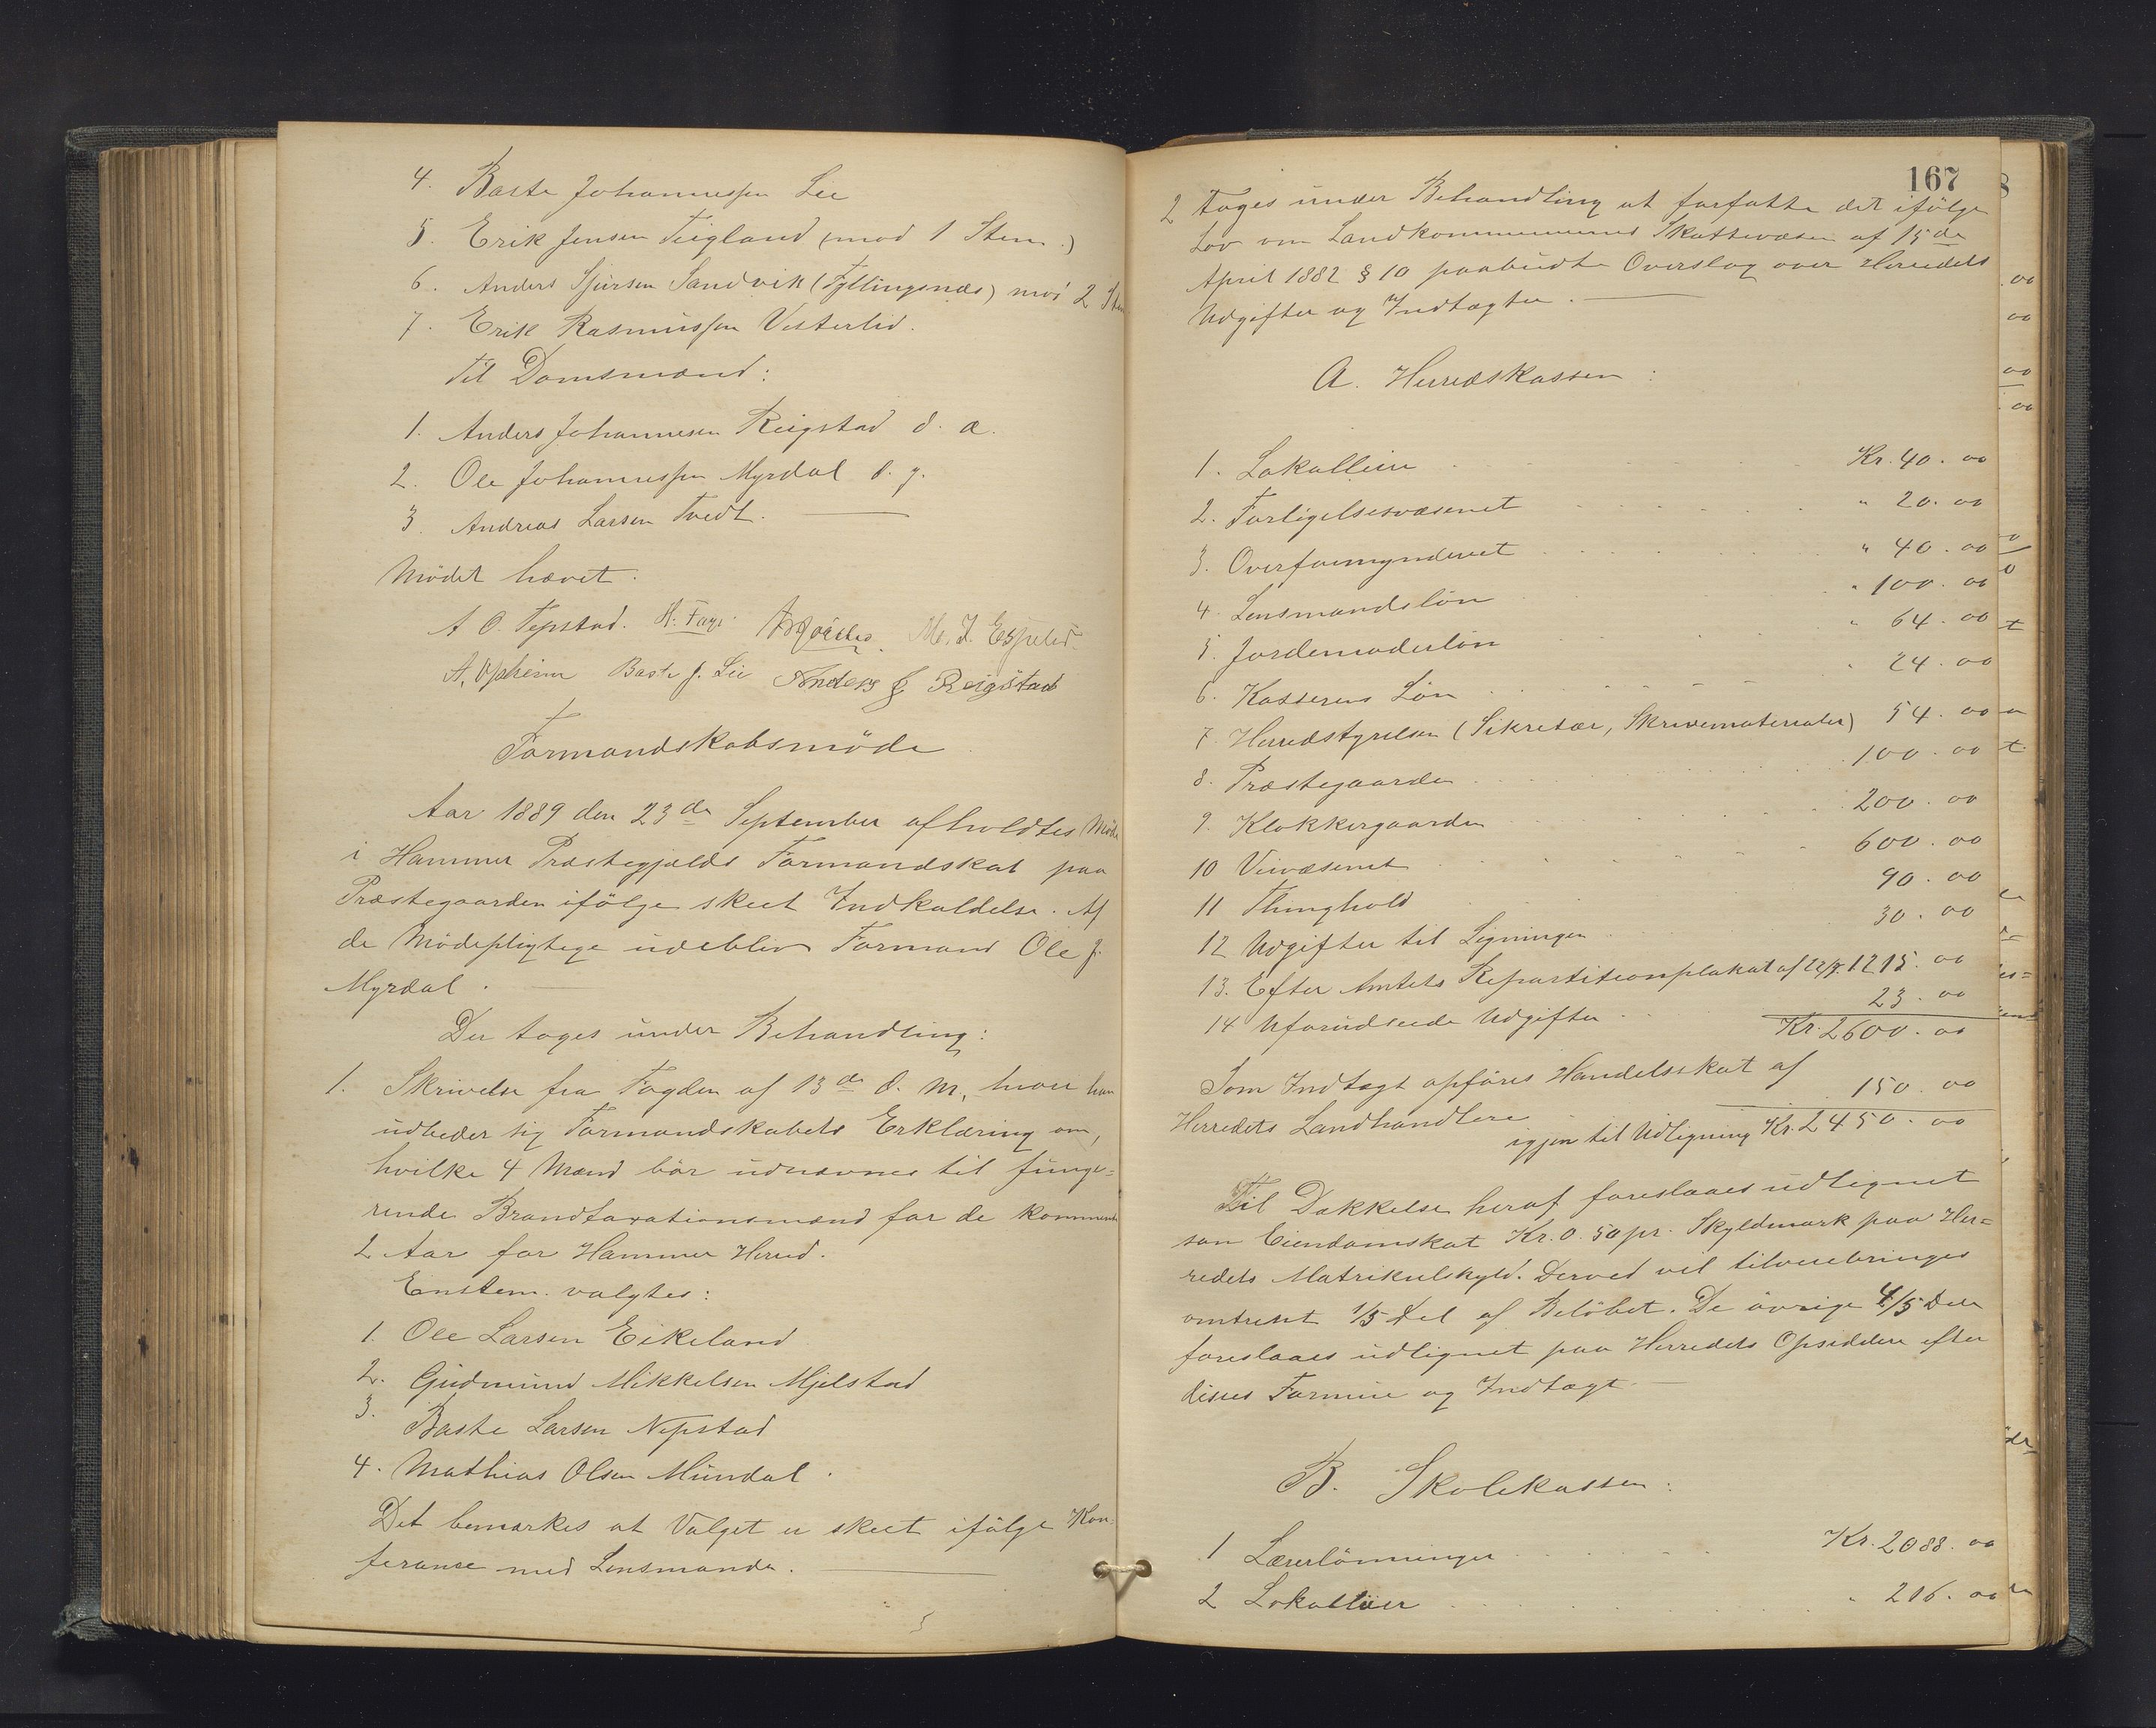 4. Baste Johannessen Lie
5. Erik Jensen Teigland (mod 1 Stem.)
6. Anders Sjursen Sandvik (Fyllingsnæs) mod 2 Stem
7. Erik Rasmussen Vesterlid.
Til Domsmænd:
1. Anders Johannesen Reigstad d. æ.
2. Ole Johannessen Myrdal d. y.
3. Andreas Larsen Tvedt.
Mødet hævet.
A O. Tepstad. H. Faye M. J. Espelid
A. Opheim Baste J. Lie Anders J Reigstad
Formandskabsmøde
Aar 1889 den 23de September afholdtes Møde
i Hammer Præstegjelds Formandskab paa
Præstegaarden ifølge skeet Indkaldelse. Af
de Mødepligtige udeblev Formand Ole J.
Myrdal.
Der toges under Behandling:
1. Skrivelse fra Fogden af 13de d. M., hvori han
udbeder sig Formandskabets Erklæring om,
hvilke 4 Mænd bør udnævnes til funge=
rende Brandtaxationsmænd for de kommende
2 Aar for Hammer Herred.
Enstem. valgtes:
1. Ole Larsen Eikeland
2. Gudmund Mikkelsen Mjelstad
3. Baste Larsen Nepstad
4. Mathias Olsen Mundal.
Det bemærkes at Valget er skeet ifølge Kon-
ferance med Lensmanden.
167
2 Toges under Behandling at forfatte det ifølge
Lov om Landkommunernes Skattevæsen af 15de
April 1882 § 10 paabudte Overslag over Herredets
Udgifter og Indtægter.
A. Herredskassen:
1. Lokalleie Kr. 40. 00
2. Forligelsesvæsenet " 20. 00
3. Overformynderiet " 40. 00
4. Lensmandsløn " 100. 00
5. Jordemoderløn " 64. 00
6. Kasserens Løn " 24. 00
7. Herredstyrelsen (Sekretær, Skrivematerialer) 54. 00
8. Præstegaarden 100. 00
9. Klokkergaarden 200. 00
10 Veivæsenet 600. 00
11 Thinghold 90. 00
12 Udgifter til Ligningen 30. 00
13. Efter Amtets Repartitionsplakat af 22/7. 1215. 00
14 Uforudseede Udgifter 23. 00
Kr. 2600. 00
Som Indtægt opføres Handelsskat af
Herredets Landhandlere 150. 00
igjen til Udligning Kr. 2450. 00
Til Dækkelse heraf foreslaaes udlignet
som Eiendomskat Kr. 0. 50 pr. Skyldmark paa Her=
redets Matrikulskyld. Derved vil tilveiebringes
omtrent 1/5 Del af Beløbet. De øvrige 4/5 Dele
foreslaaes udlignet paa Herredets Opsiddere efter
disses Formue og Indtægt.
B. Skolekassen:
1 Lærerlønninger Kr. 2088. 00
2 Lokalleier " 216. 00